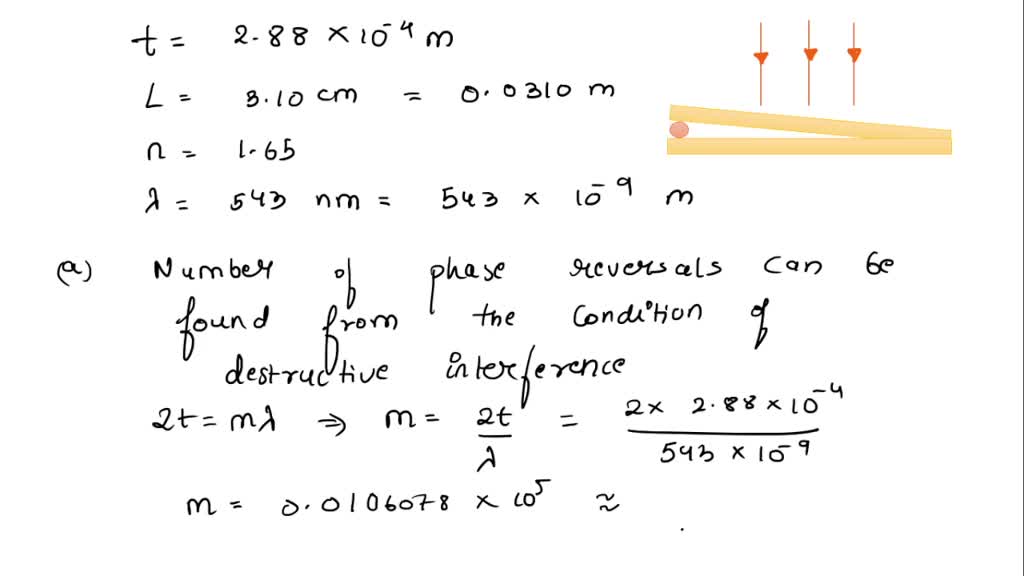 t = 2.88 × 10⁻⁴ m
L = 3.10 cm = 0.0310 m
n = 1.65
λ = 543 nm = 543 × 10⁻⁹ m
(a) Number of phase reversals can be
found from the condition of
destructive interference
2t = mλ ⇒ m = 2t/λ = 2 × 2.88 × 10⁻⁴ / 543 × 10⁻⁹
m = 0.0106078 × 10⁵ ≈